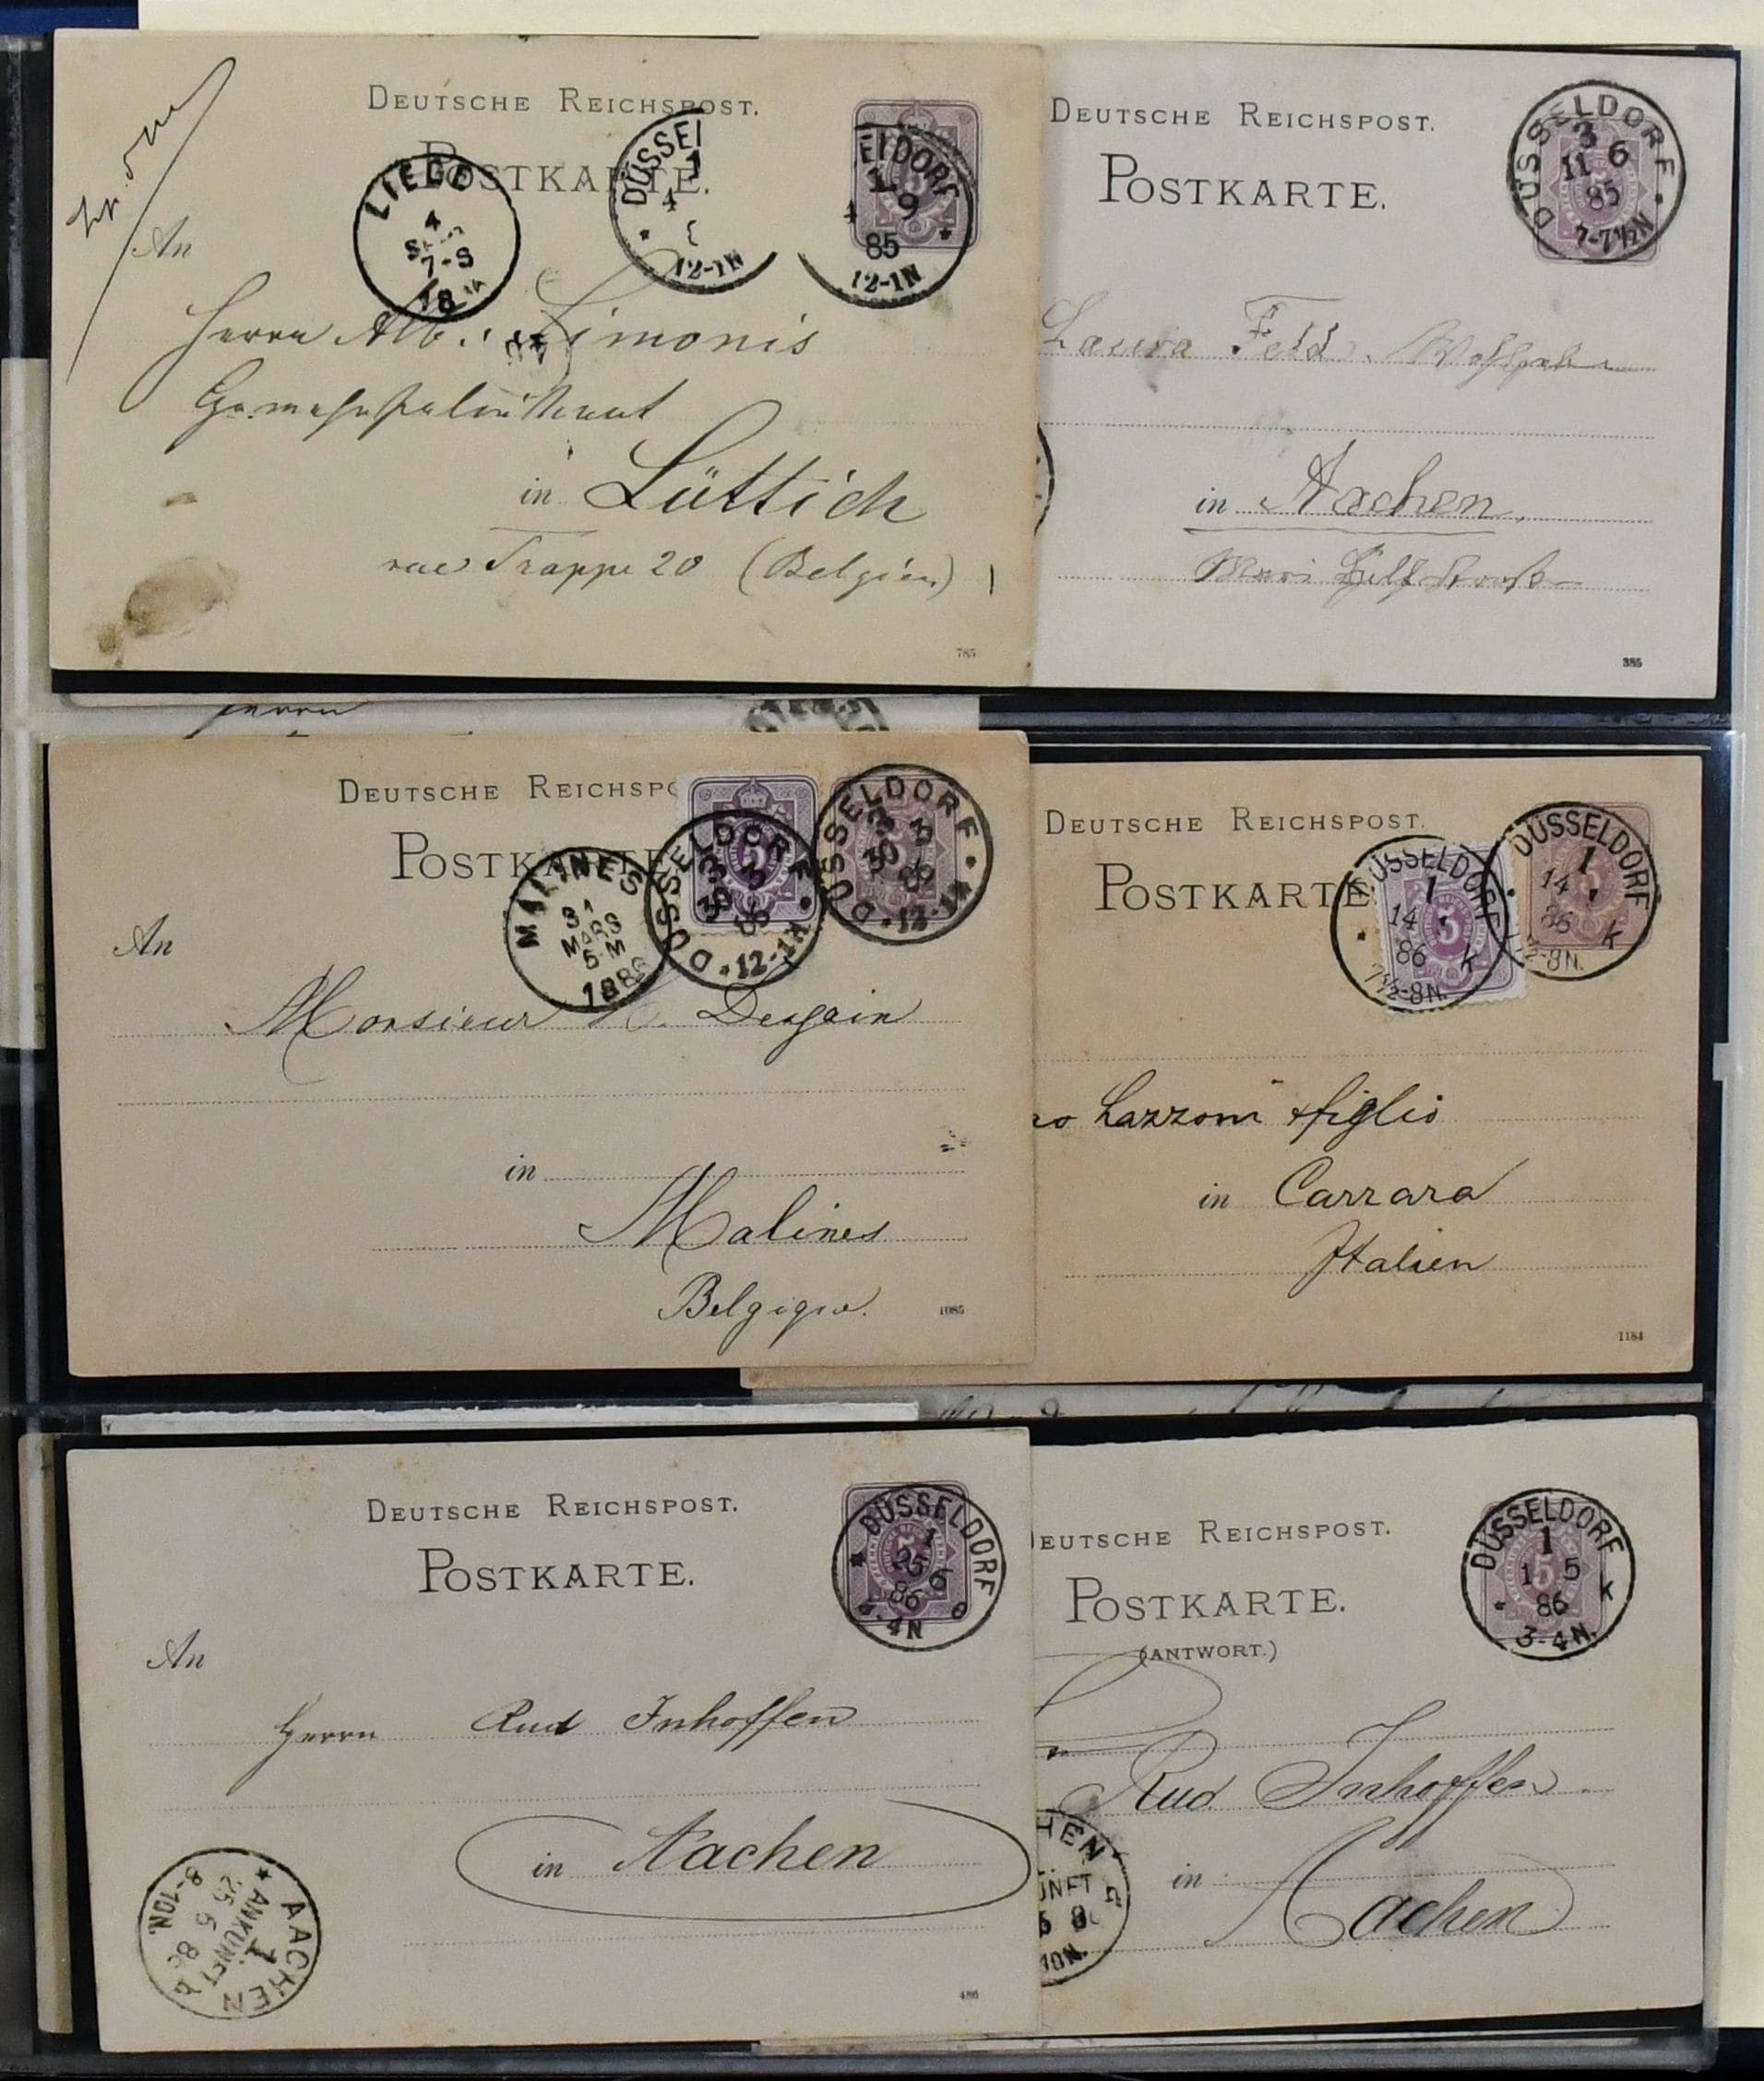 DEUTSCHE REICHSPOST.
POSTKARTE.
LIEGE
4
7-S
18
DÜSSEL
1
4
12-1N
ELDORF
1
4 9
85
12-1N
5
An
Herrn Alb. Simonis
in Lüttich
rue Trappe 20 (Belgien)
785
DEUTSCHE REICHSPOST.
POSTKARTE.
DÜSSELDORF
3
11 6
85
7-7½N
Laura Feld
in Aachen.
385
Herrn
DEUTSCHE REICHSPO
POSTKARTE
MALINES
31
MARS
5-M
1886
DÜSSELDORF
3
30 3
86
12-1N
5
DÜSSELDORF
3
30 3
86
12-1N
An
Monsieur Dessain
in
Malines
Belgique.
1085
DEUTSCHE REICHSPOST.
POSTKARTE
DÜSSELDORF
1
14 1
86 K
7½-8N.
5
DÜSSELDORF
1
14 1
86 K
½-8N.
no Lazzoni & figlio
in Carrara
Italien
1184
DEUTSCHE REICHSPOST.
POSTKARTE.
DÜSSELDORF
1
25 5
86
-4N
An
Herrn Rud Inhoffen
in Aachen
AACHEN
1
ANKUNFT
25 5 86
8-10N.
486
DEUTSCHE REICHSPOST.
POSTKARTE.
(ANTWORT.)
DÜSSELDORF
1
1 5
86 K
3-4N.
5
Rud Inhoffen
in Aachen
HEN
UNFT
5 8
10N.